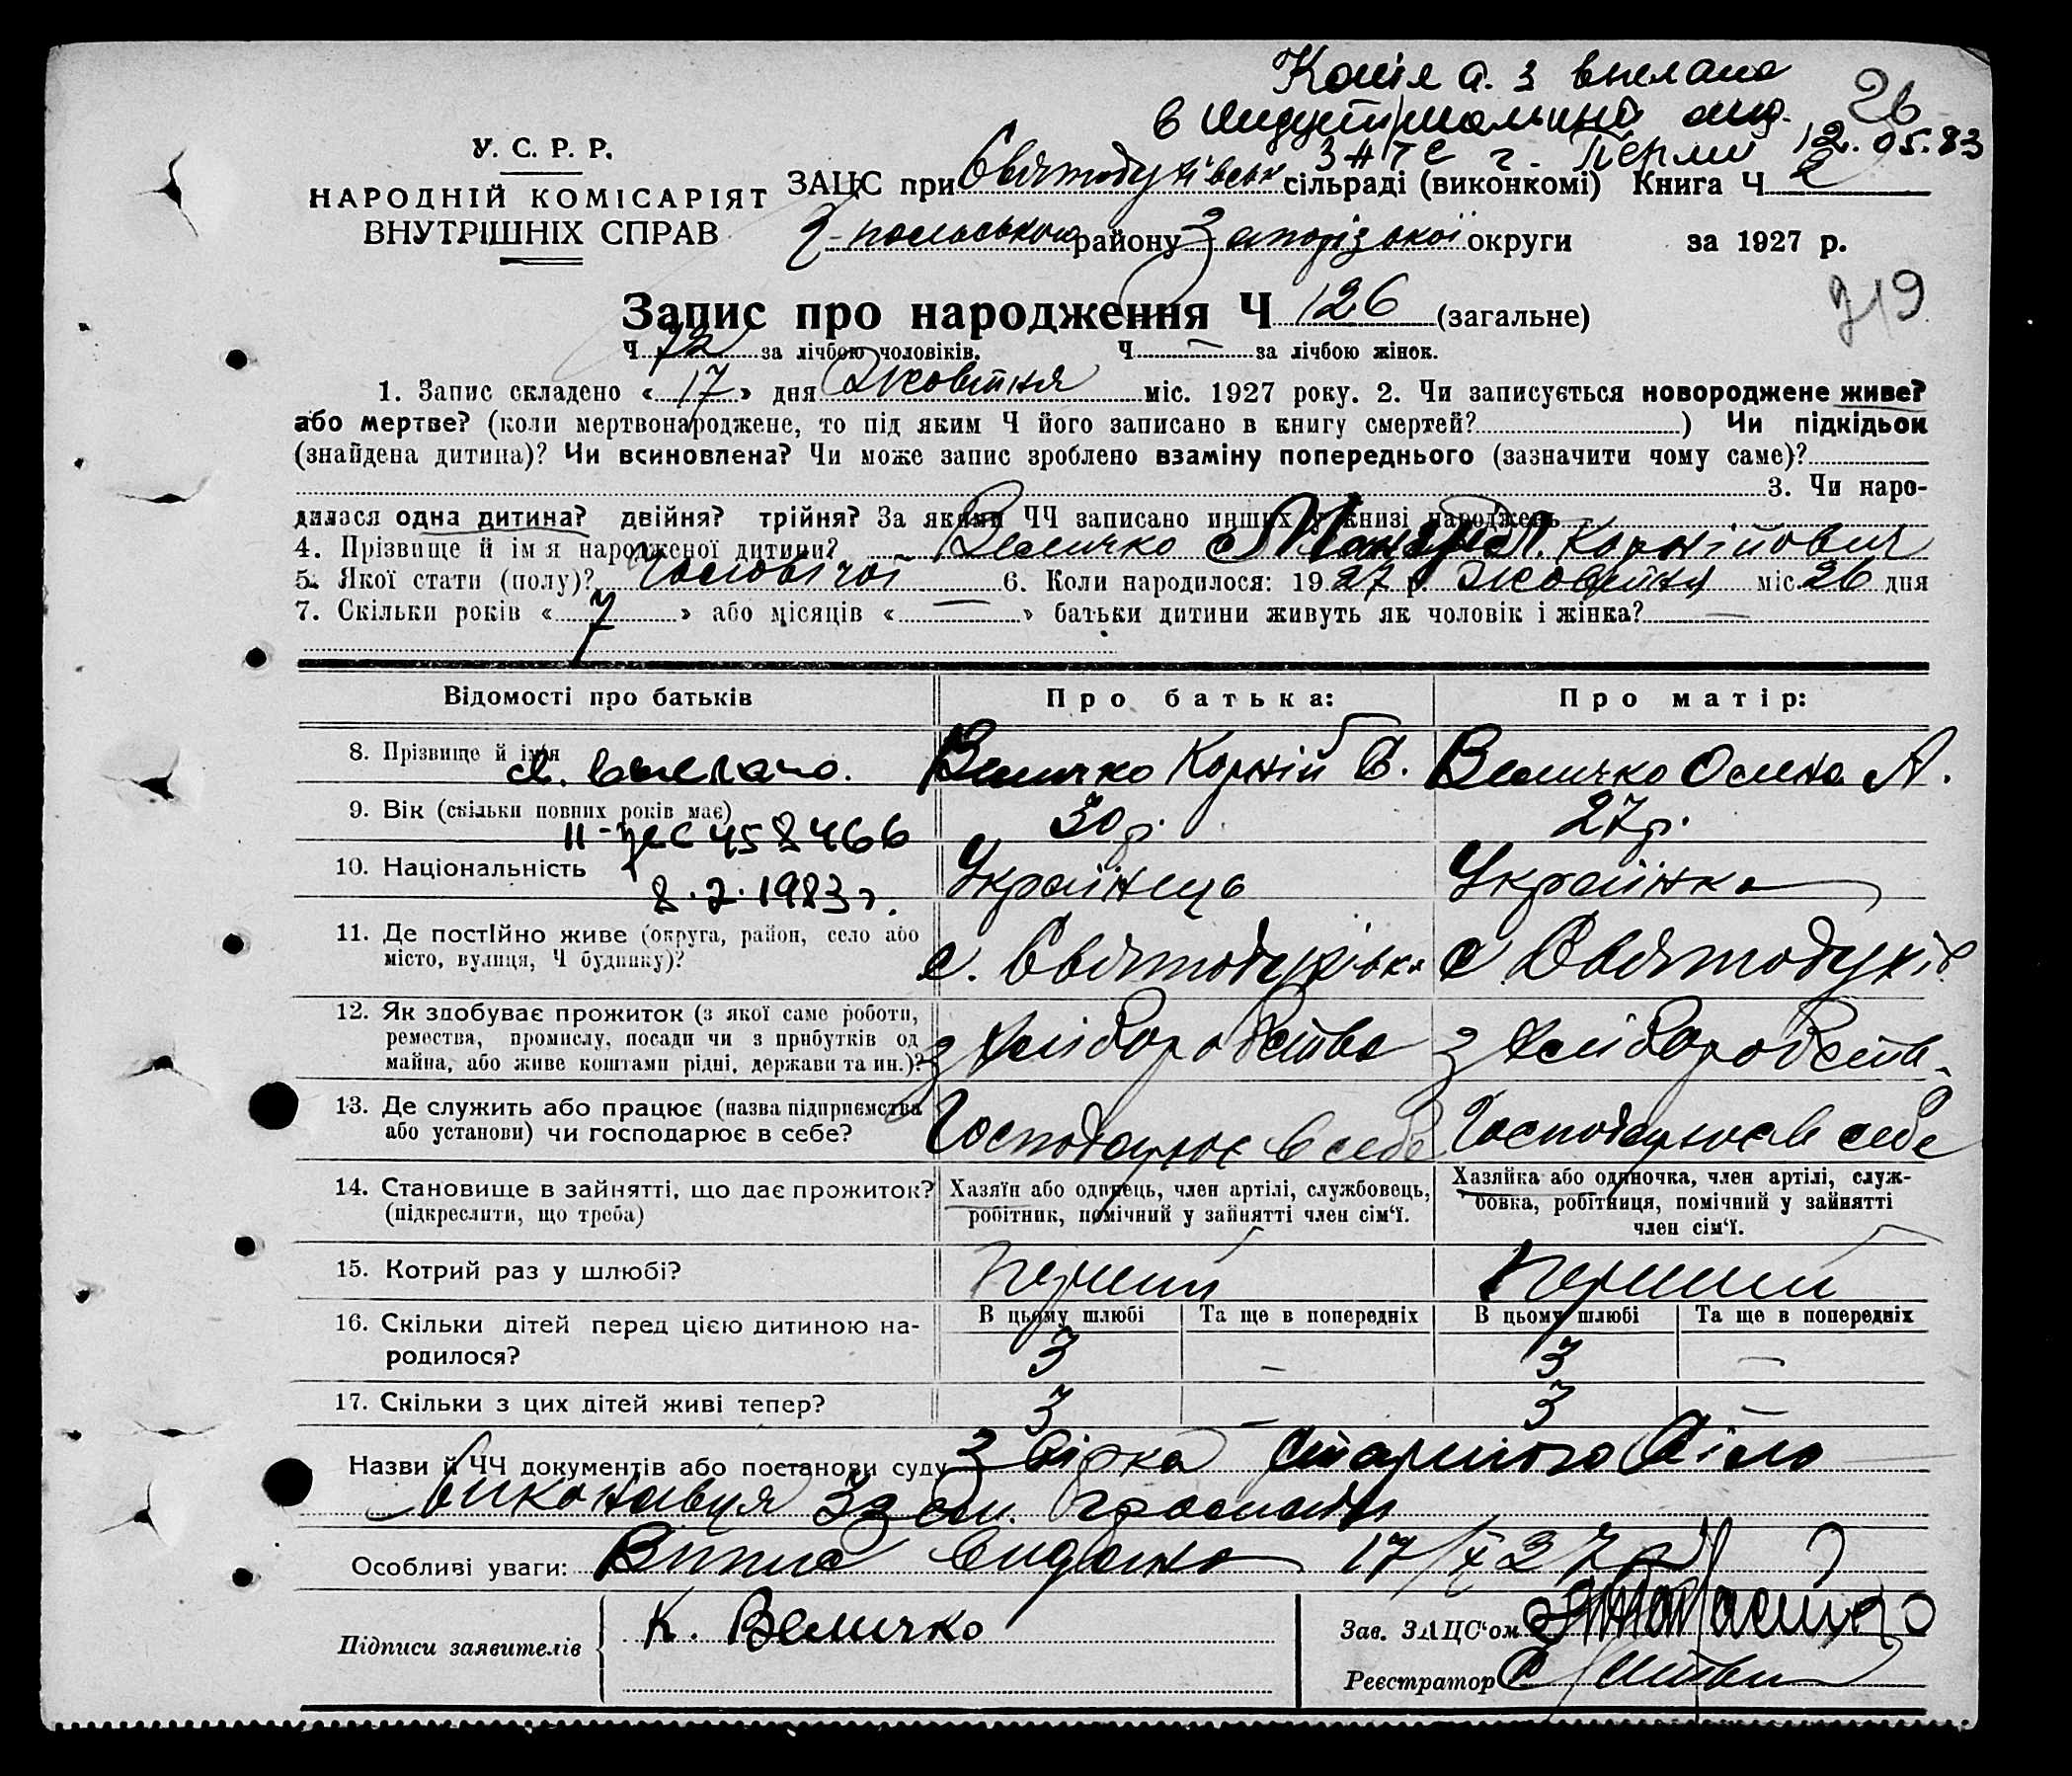 Копія а. з выслана
в индустриальный отд. 26
ЗАГС г. Перми 12.05.83
У. С. Р. Р.
НАРОДНІЙ КОМІСАРІЯТ
ВНУТРІШНІХ СПРАВ
ЗАЦС при Святодухівськ сільраді (виконкомі) Книга Ч 2
району Запорізької округи за 1927 р.
719
Запис про народження Ч 126 (загальне)
Ч 72 за лічбою чоловіків. Ч — за лічбою жінок.
1. Запис складено « 17 » дня Жовтня міс. 1927 року. 2. Чи записується новороджене живе?
або мертве? (коли мертвонароджене, то під яким Ч його записано в книгу смертей? ) Чи підкідьок
(знайдена дитина)? Чи всиновлена? Чи може запис зроблено взаміну попереднього (зазначити чому саме)?
3. Чи наро-
дилася одна дитина? двійня? трійня? За якими ЧЧ записано инших у книзі народжень
4. Прізвище й ім'я народженої дитини? Величко Корнійович
5. Якої стати (полу)? Чоловічої 6. Коли народилося: 1927 р. Жовтня міс. 26 дня
7. Скільки років « 7 » або місяців « — » батьки дитини живуть як чоловік і жінка? —
Відомості про батьків Про батька: Про матір:
8. Прізвище й ім'я Величко Корній В. Величко Олена А.
св. выслано.
9. Вік (скільки повних років має) 30 р. 27 р.
458466
10. Національність Українець Українка
8.2.1983 г.
11. Де постійно живе (округа, район, село або с. Святодухівка с Святодухів
місто, вулиця, Ч будинку)?
12. Як здобуває прожиток (з якої саме роботи, з хліборобства з хліборобств
ремества, промислу, посади чи з прибутків од
майна, або живе коштами рідні, держави та ин.)?
13. Де служить або працює (назва підприємства Господарює в себе Господарює в себе
або установи) чи господарює в себе?
14. Становище в зайнятті, що дає прожиток? Хазяїн або одинець, член артілі, службовець, Хазяйка або одиночка, член артілі, служ-
(підкреслити, що треба) робітник, помічний у зайнятті член сім'ї. бовка, робітниця, помічний у зайнятті
член сім'ї.
15. Котрий раз у шлюбі? Перший Перший
В цьому шлюбі Та ще в попередніх В цьому шлюбі Та ще в попередніх
16. Скільки дітей перед цією дитиною на- 3 — 3 —
родилося?
17. Скільки з цих дітей живі тепер? 3 — 3 —
Назви й ЧЧ документів або постанови суду
Особливі уваги: Випис видано 17/X 27 р
Підписи заявителів К. Величко Зав. ЗАЦС'ом
Реєстратор